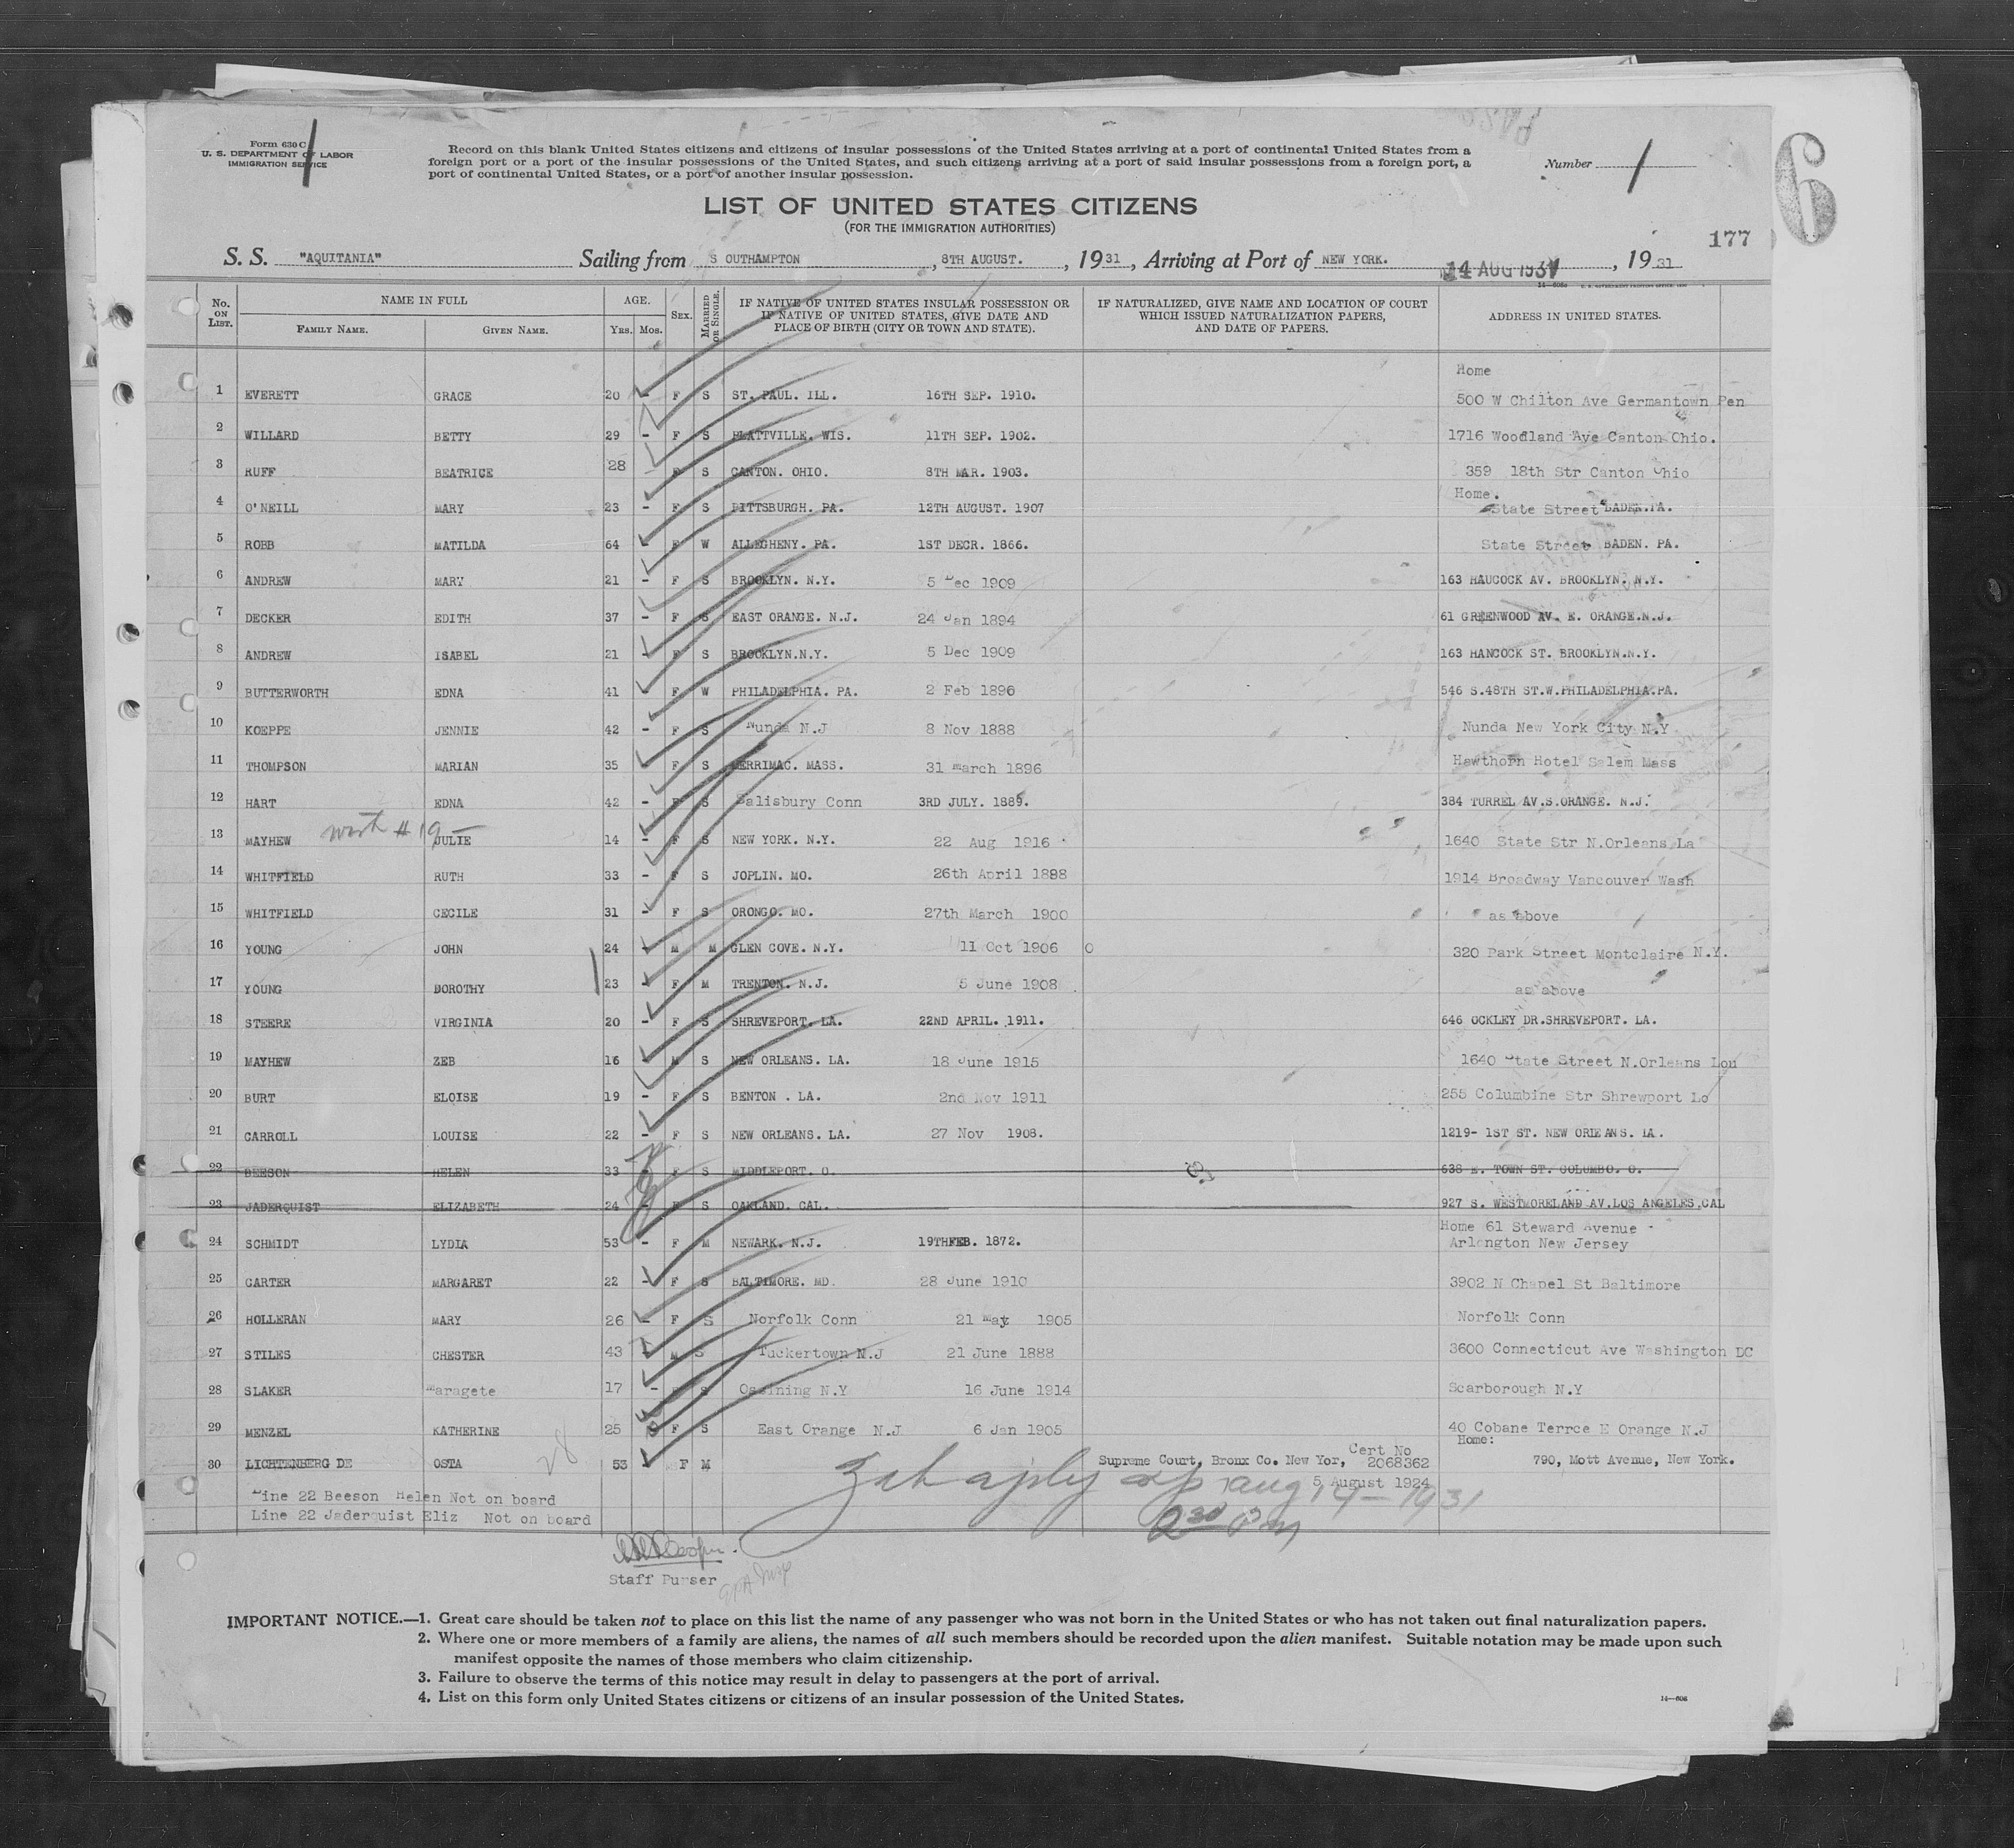 Form 630 C
U. S. DEPARTMENT OF LABOR
IMMIGRATION SERVICE
Record on this blank United States citizens and citizens of insular possessions of the United States arriving at a port of continental United States from a
foreign port or a port of the insular possessions of the United States, and such citizens arriving at a port of said insular possessions from a foreign port, a
port of continental United States, or a port of another insular possession.
Number 1
6
LIST OF UNITED STATES CITIZENS
(FOR THE IMMIGRATION AUTHORITIES)
177
S. S. "AQUITANIA" Sailing from S OUTHAMPTON, 8TH AUGUST., 1931, Arriving at Port of NEW YORK. 14 AUG 1931, 1931
No. ON LIST. NAME IN FULL FAMILY NAME. GIVEN NAME. AGE. Yrs. Mos. SEX. MARRIED OR SINGLE. IF NATIVE OF UNITED STATES INSULAR POSSESSION OR IF NATIVE OF UNITED STATES, GIVE DATE AND PLACE OF BIRTH (CITY OR TOWN AND STATE). IF NATURALIZED, GIVE NAME AND LOCATION OF COURT WHICH ISSUED NATURALIZATION PAPERS, AND DATE OF PAPERS. ADDRESS IN UNITED STATES.
Home
1 EVERETT GRACE 20 - F S ST. PAUL. ILL. 16TH SEP. 1910. 500 W Chilton Ave Germantown Pen
2 WILLARD BETTY 29 - F S PLATTVILLE. WIS. 11TH SEP. 1902. 1716 Woodland Ave Canton Ohio.
3 RUFF BEATRICE 28 - F S CANTON. OHIO. 8TH MAR. 1903. 359 18th Str Canton Ohio
Home.
4 O'NEILL MARY 23 - F S PITTSBURGH. PA. 12TH AUGUST. 1907 State Street BADEN.PA.
5 ROBB MATILDA 64 - F W ALLEGHENY. PA. 1ST DECR. 1866. State Street BADEN. PA.
6 ANDREW MARY 21 - F S BROOKLYN. N.Y. 5 Dec 1909 163 HAUCOCK AV. BROOKLYN. N.Y.
7 DECKER EDITH 37 - F S EAST ORANGE. N.J. 24 Jan 1894 61 GREENWOOD AV. E. ORANGE.N.J.
8 ANDREW ISABEL 21 - F S BROOKLYN.N.Y. 5 Dec 1909 163 HANCOCK ST. BROOKLYN.N.Y.
9 BUTTERWORTH EDNA 41 - F W PHILADELPHIA. PA. 2 Feb 1890 546 S.48TH ST.W.PHILADELPHIA.PA.
10 KOEPPE JENNIE 42 - F S Nunda N.J 8 Nov 1888 Nunda New York City N.Y
11 THOMPSON MARIAN 35 - F S MERRIMAC. MASS. 31 march 1896 Hawthorn Hotel Salem Mass
12 HART EDNA 42 - F S Salisbury Conn 3RD JULY. 1889. 384 TURREL AV.S.ORANGE. N.J.
13 MAYHEW with #19 JULIE 14 - F S NEW YORK. N.Y. 22 Aug 1916 1640 State Str N.Orleans La
14 WHITFIELD RUTH 33 - F S JOPLIN. MO. 26th April 1898 1914 Broadway Vancouver Wash
15 WHITFIELD CECILE 31 - F S ORONGO. MO. 27th March 1900 as above
16 YOUNG JOHN 24 - M M GLEN COVE. N.Y. 11 Oct 1906 O 320 Park Street Montclaire N.Y.
17 YOUNG DOROTHY 23 - F M TRENTON. N.J. 5 June 1908 as above
18 STEERE VIRGINIA 20 - F S SHREVEPORT. LA. 22ND APRIL. 1911. 646 OCKLEY DR.SHREVEPORT. LA.
19 MAYHEW ZEB 16 - M S NEW ORLEANS. LA. 18 June 1915 1640 State Street N.Orleans Lou
20 BURT ELOISE 19 - F S BENTON . LA. 2nd Nov 1911 255 Columbine Str Shrewport Lo
21 CARROLL LOUISE 22 - F S NEW ORLEANS. LA. 27 Nov 1908. 1219- 1ST ST. NEW ORLEANS. LA.
22 BEESON HELEN 33 - F S MIDDLEPORT. O. 638 E. TOWN ST. COLUMBO. O.
23 JADERQUIST ELIZABETH 24 - F S OAKLAND. CAL. 927 S. WESTMORELAND AV.LOS ANGELES.CAL
Home 61 Steward Avenue -
24 SCHMIDT LYDIA 53 - F M NEWARK. N.J. 19THFEB. 1872. Arlongton New Jersey
25 CARTER MARGARET 22 - F S BALTIMORE. MD. 28 June 1910 3902 N Chapel St Baltimore
26 HOLLERAN MARY 26 - F S Norfolk Conn 21 may 1905 Norfolk Conn
27 STILES CHESTER 43 - M S Tuckertown N.J 21 June 1888 3600 Connecticut Ave Washington DC
28 SLAKER maragete 17 - F S Ossining N.Y 16 June 1914 Scarborough N.Y
29 MENZEL KATHERINE 25 F S East Orange N.J 6 Jan 1905 40 Cobane Terrce E Orange N.J
Home:
30 LICHTENBERG DE OSTA 53 F M Supreme Court, Bronx Co. New Yor, Cert No 2068362 790, Mott Avenue, New York.
28
5 August 1924
Line 22 Beeson Helen Not on board
Line 22 Jaderquist Eliz Not on board
aug 14-1931
2 30 Pm
Staff Purser
IMPORTANT NOTICE.—1. Great care should be taken not to place on this list the name of any passenger who was not born in the United States or who has not taken out final naturalization papers.
2. Where one or more members of a family are aliens, the names of all such members should be recorded upon the alien manifest. Suitable notation may be made upon such
manifest opposite the names of those members who claim citizenship.
3. Failure to observe the terms of this notice may result in delay to passengers at the port of arrival.
4. List on this form only United States citizens or citizens of an insular possession of the United States.
14—606